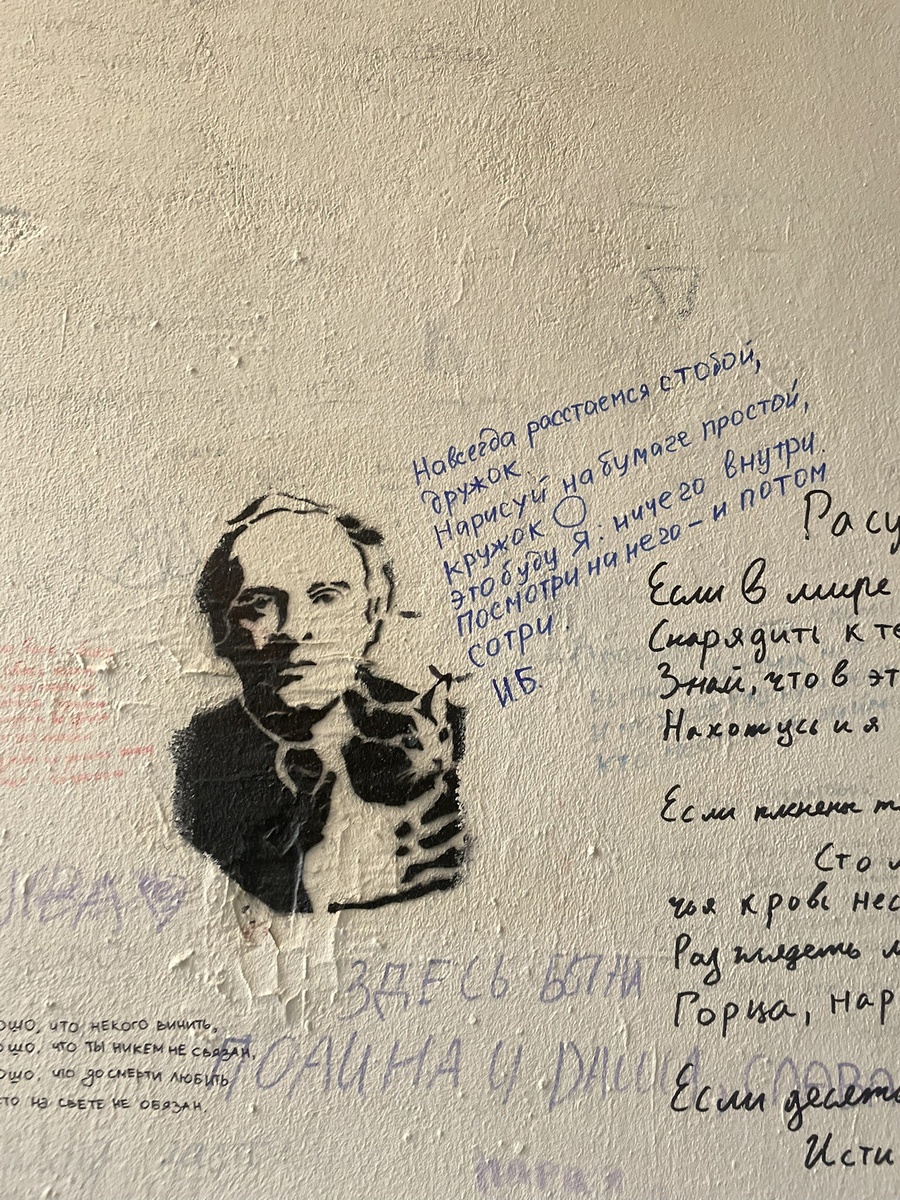 Навсегда расстаемся с тобой,
дружок.
Нарисуй на бумаге простой,
кружок
это буду я: ничего внутри.
Посмотри на него – и потом
сотри.
И.Б.
Расу
Если в мире
Снарядить к те
Знай, что в эт
Нахожусь и я
Если пленены т
Сто л
чья кровь нес
Разглядеть м
Горца, нар
Если десят
Исти
ЗДЕСЬ БЫЛИ
ПОЛИНА И ДАША
ошо, что некого винить,
ошо, что ты никем не связан,
ошо, что до смерти любить
то на свете не обязан.